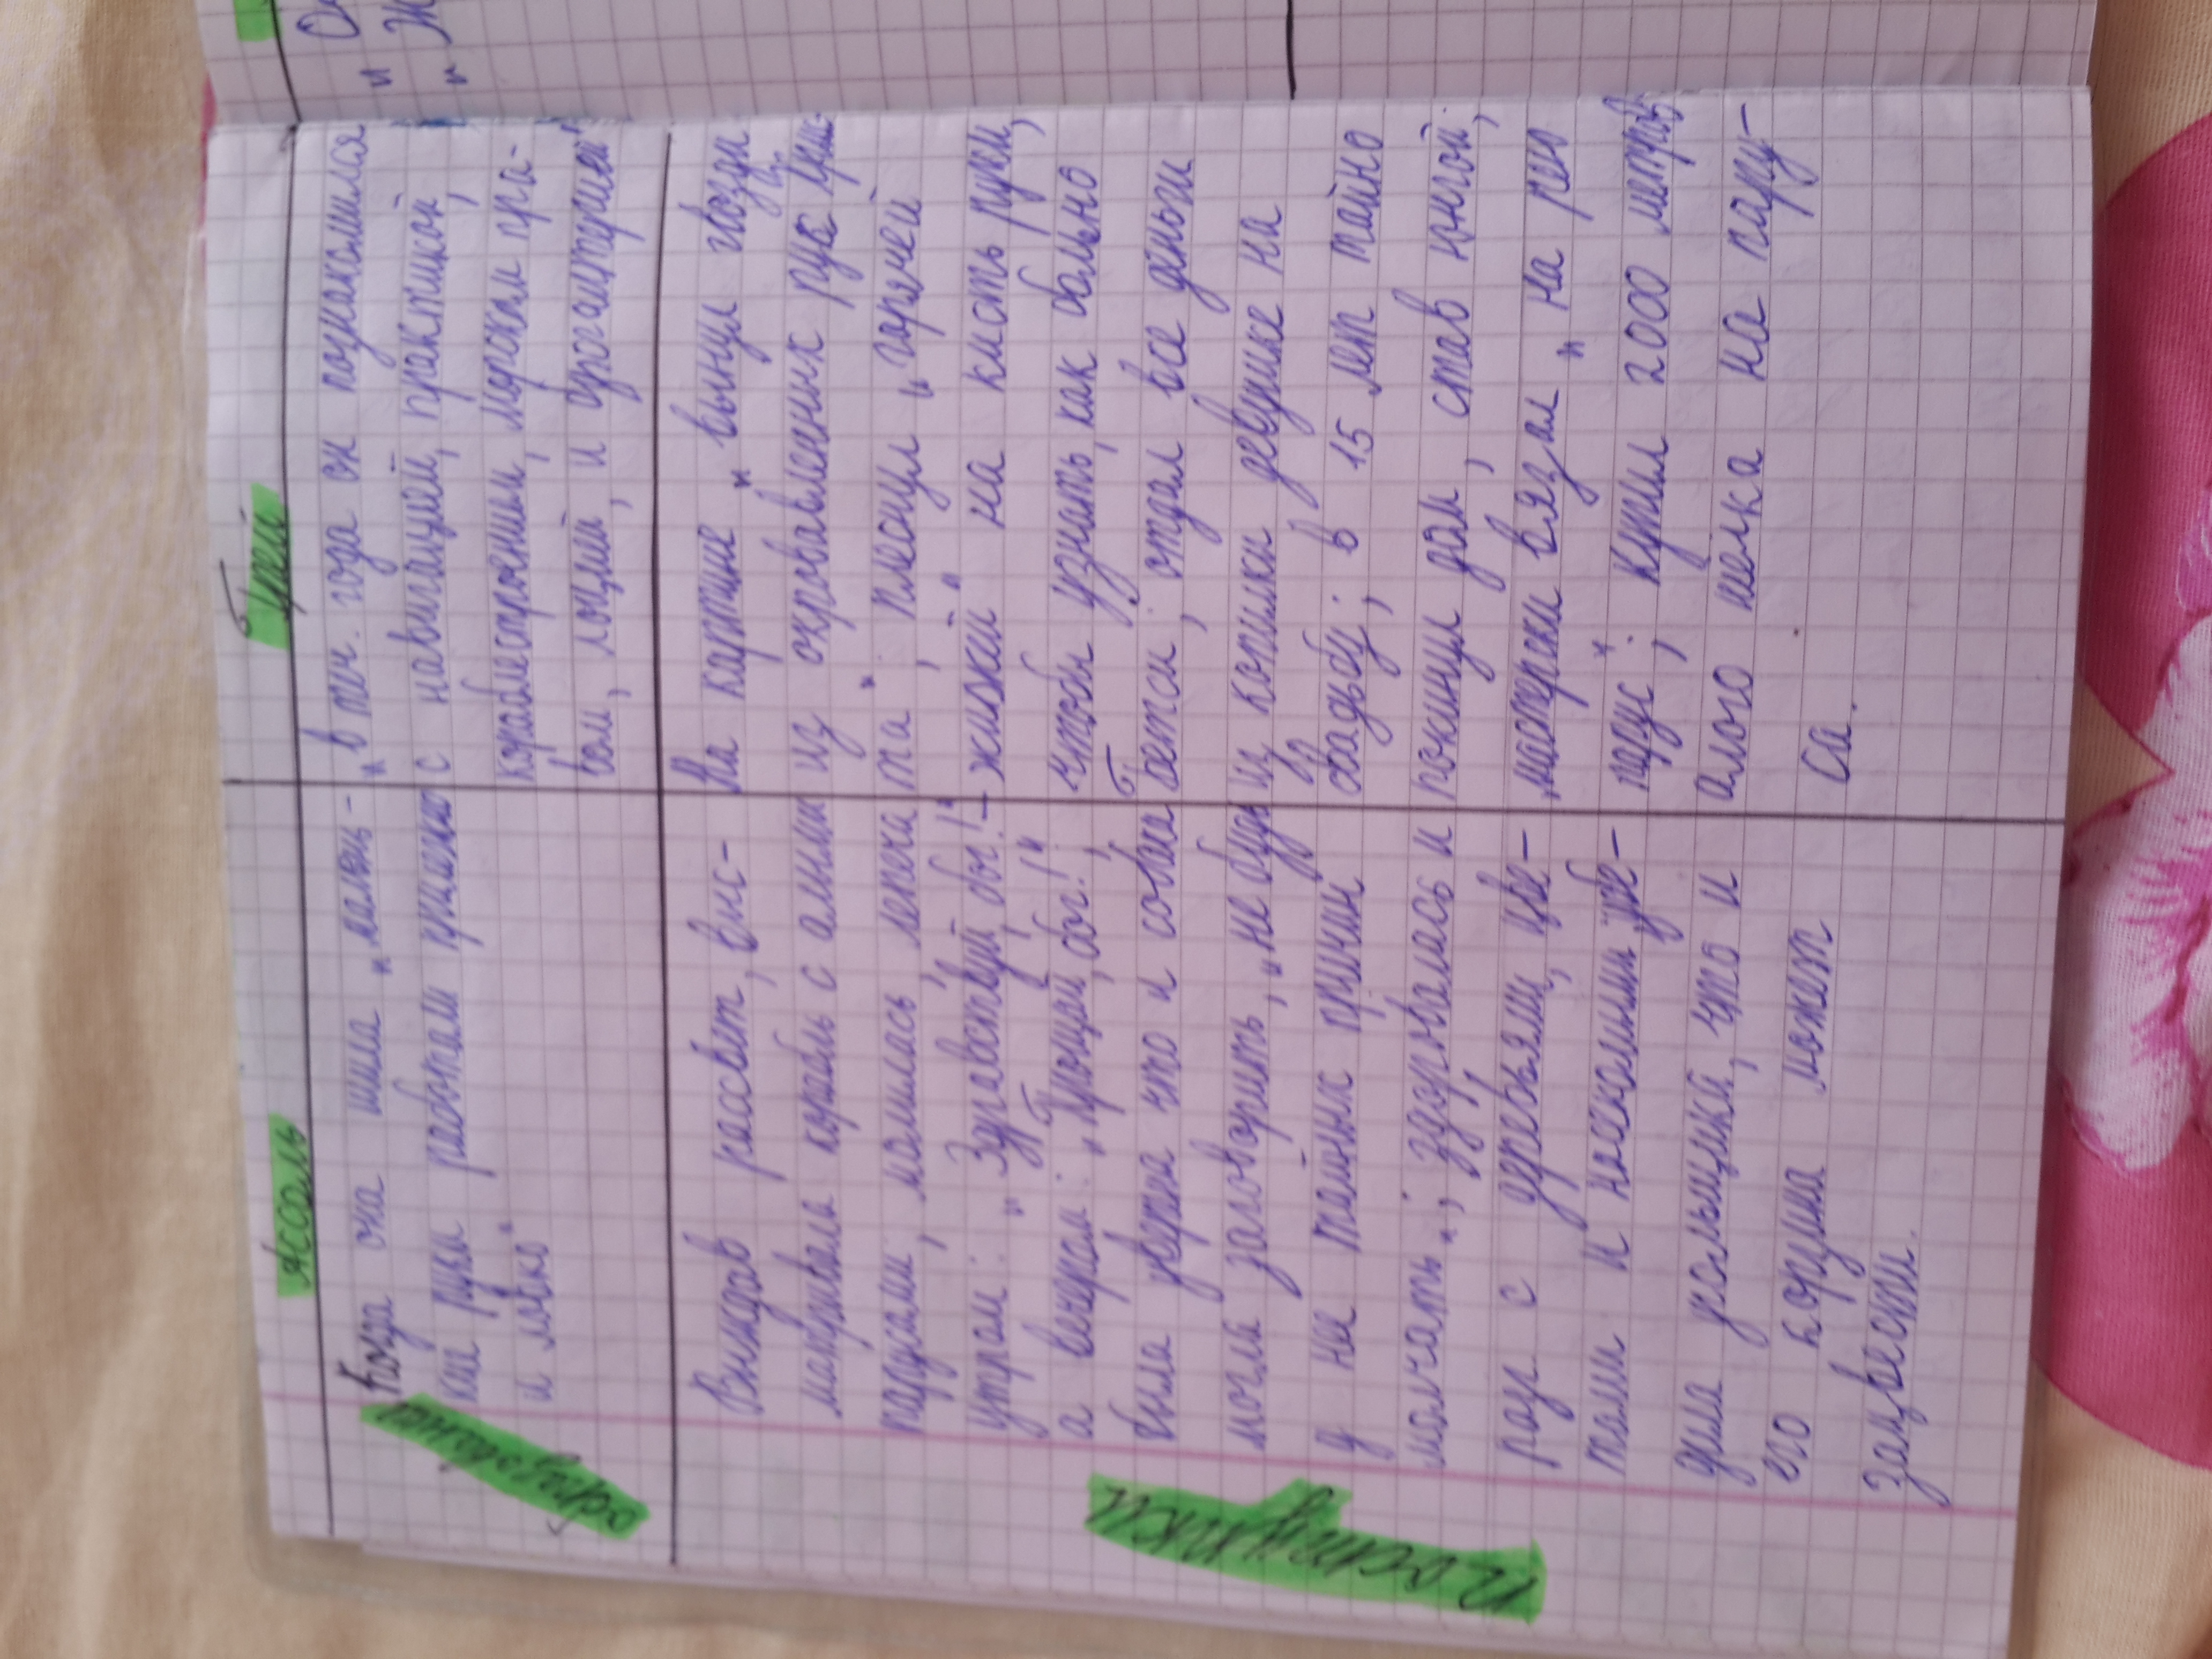 Ассоль
Грей
образование
Когда она шила „малень-
кие руки работали прилежно
и ловко“
„в теч. года он познакомился
с навигацией, практикой,
кораблестроением, морским пра-
вом, лоцией, и бухгалтерией“
Поступки
Выждав рассвет, выс-
матривала корабль с алыми
парусами, молилась, лепеча
утром: „Здравствуй, бог!“,
а вечером: „Прощай, бог!“,
была уверена что и собака
могла заговорить, „не будь
у неё тайных причин
молчать“; здоровалась и
раз с деревьями, цве-
тами и насекомыми; убе-
дила угольщика, что и
его корзина может
зацвести.
На картине „вынул гвозди
из окровавленных рук Хрис-
та“; плеснул „горячей
жижей“ на кисть руки,
чтобы узнать, как больно
Бетси; отдал все деньги
из копилки девушке на
свадьбу; в 15 лет тайно
покинул дом, став юнгой;
мастерски вязал „на рею
парус“; купил 2000 метров
алого шелка на пару-
са.